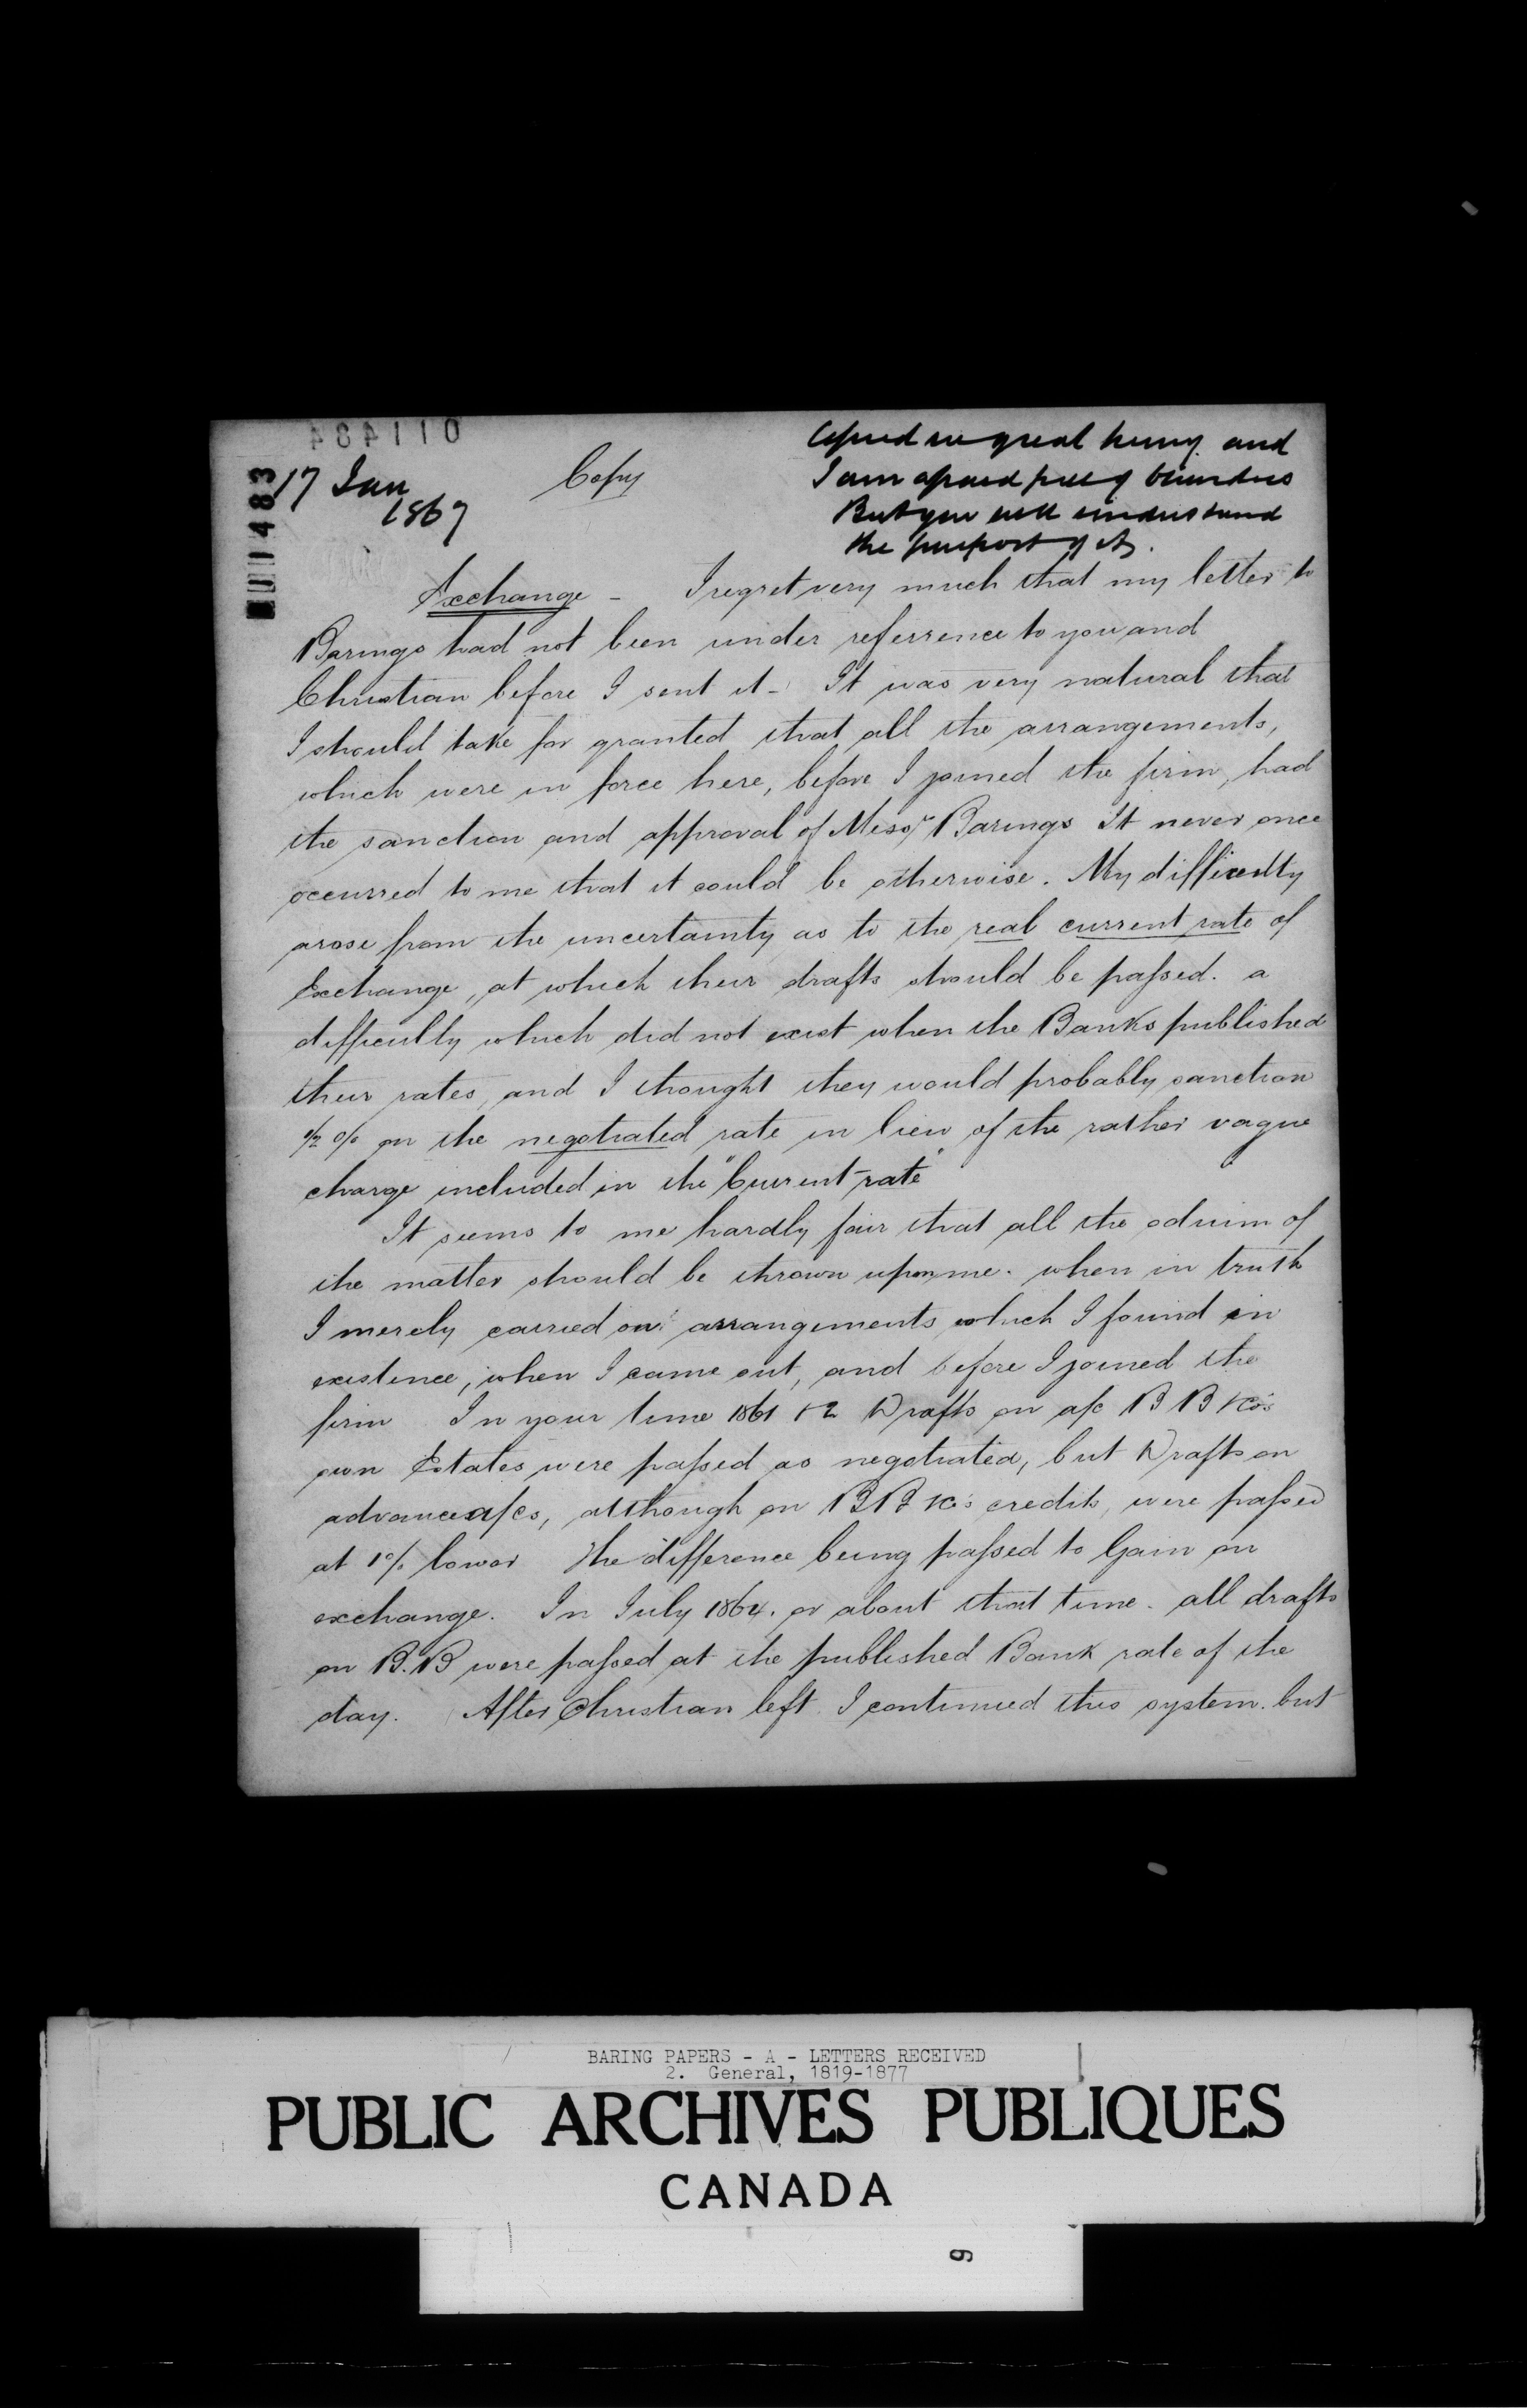 011484
001483
17 Jan
1867
Copy
Copied in great hurry and
I am afraid full of blunders
But you will understand
the purport of it.
Exchange - I regret very much that my letter to
Barings had not been under referrence to you and
Christian before I sent it - It was very natural that
I should take for granted that all the arrangements,
which were in force here, before I joined the firm, had
the sanction and approval of Messrs Barings It never once
occurred to me that it could be otherwise. My difficulty
arose from the uncertainty as to the real current rate of
Exchange, at which their drafts should be passed. a
difficulty which did not exist when the Banks published
their rates, and I thought they would probably sanction
1/2 % on the negotiated rate in lieu of the rather vague
charge included in the "Current-rate"
It seems to me hardly fair that all the odium of
the matter should be thrown upon me. when in truth
I merely carried on arrangements which I found in
existence, when I came out, and before I joined the
firm In your time 1861 & 2 Drafts on a/c B B &Co's
own Estates were passed as negotiated, but Drafts on
advance a/cs, although on BB &Co's credits, were passed
at 1% lower The difference being passed to Gain on
exchange. In July 1864. or about that time. all drafts
on B.B were passed at the published Bank rate of the
day. After Christian left I continued this system. but
BARING PAPERS - A - LETTERS RECEIVED
2. General, 1819-1877
PUBLIC ARCHIVES PUBLIQUES
CANADA
9